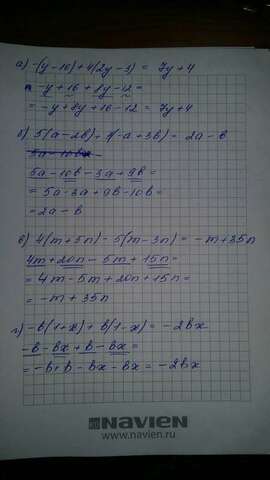 а) -(y-16)+4(2y-3) = 7y+4
-y+16+8y-12=
=-y+8y+16-12 = 7y+4
б) 5(a-2b)+3(-a+3b)= 2a-b
5a-10b-3a+9b=
=5a-3a+9b-10b=
=2a-b
в) 4(m+5n)-5(m-3n)=-m+35n
4m+20n-5m+15n=
=4m-5m+20n+15n=
=-m+35n
г) -b(1+x)+b(1-x)=-2bx
-b-bx+b-bx=
=-b+b-bx-bx=-2bx
NAVIEN
www.navien.ru